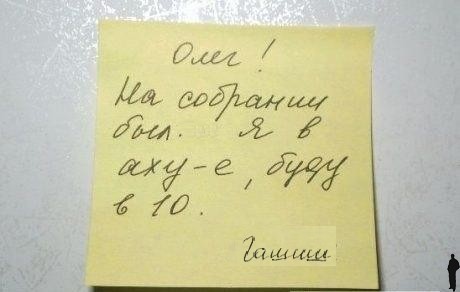 Олег!
На собрании
был. Я в
аху-е, буду
в 10.
Гашиш